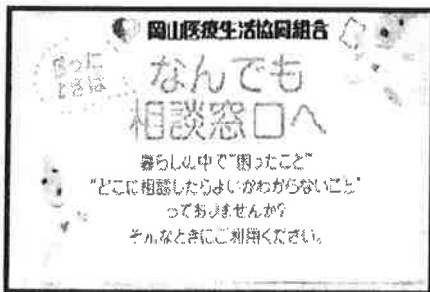 岡山医療生活協同組合
困ったに
ときは
なんでも
相談窓口へ
暮らしの中で"困ったこと"
"どこに相談したらよいかわからないこと"
っておりませんか?
そんなときにご利用ください。